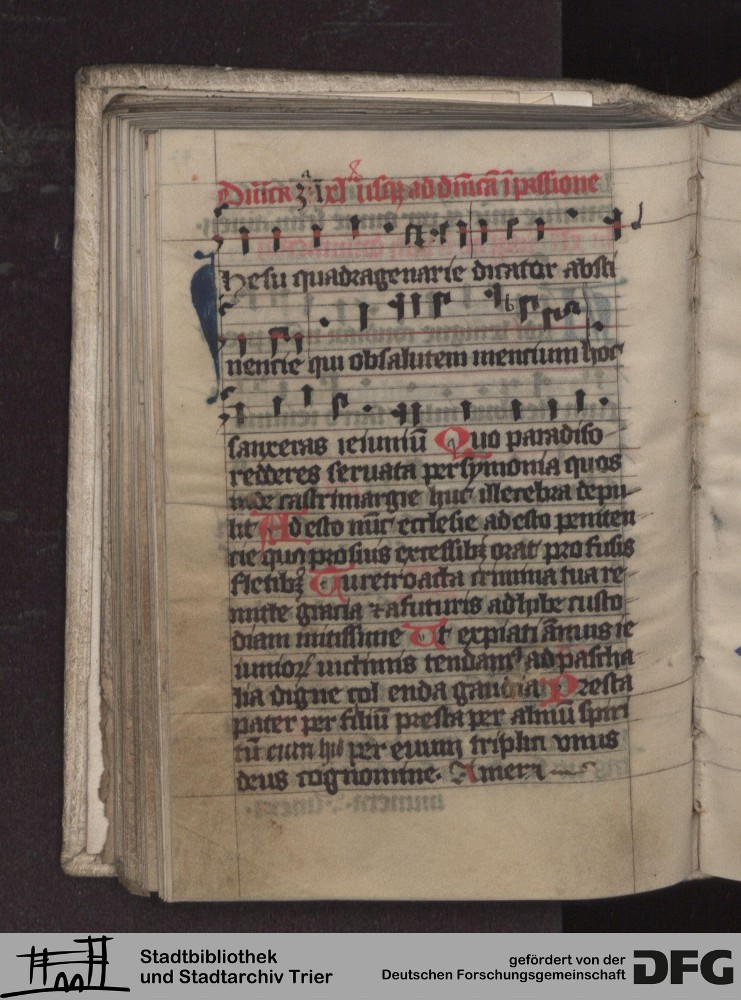 Dnica 3ª i xl usq; ad dnicā ī passione
Ihesu quadragenarie dicator absti
nencie qui ob salutem mencium hoc
sanxeras ieiuniū Quo paradiso
redderes seruata persymonia quos
inde castrimargie huc illecebra depu
lit Adesto nūc ecclesie adesto peniten
cie qua pro suis excessibꝫ orat profusis
fletibꝫ Tu retroacta crimina tua re
mitte gracia ⁊ a futuris adhibe custo
diam mitissime Ut expiati ānuis ie
iunioꝝ victimis tendamꝰ ad pascha
lia digne col enda gaudia Presta
pater per filiū presta per almū spiri
tū cum hijs per euum triplici vnus
deus cognomine. Amen
Stadtbibliothek
und Stadtarchiv Trier
gefördert von der
Deutschen Forschungsgemeinschaft
DFG